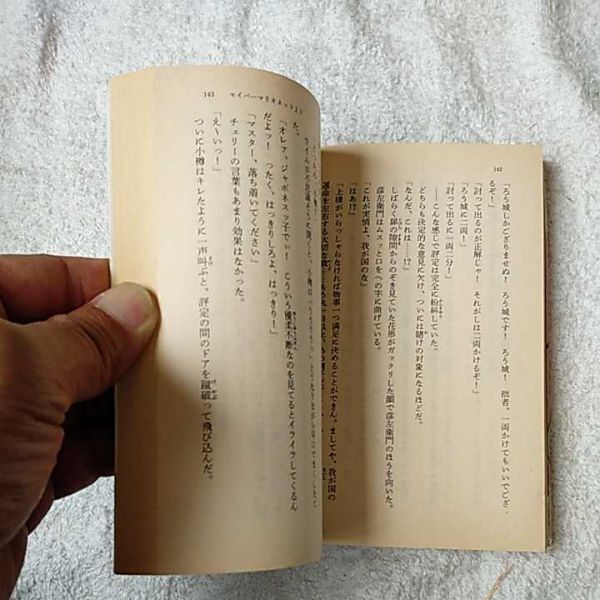 142
「ろう城しかござりませぬ！　ろう城です！　ろう城！　拙者、一両かけてもいいでござ
るぞ！」
「討って出るのが正解じゃ！　それがしは二両かけるぞ！」
「ろう城に二両！」
「討って出るに一両二分！」
――こんな感じで評定は完全に紛糾していた。
どちらも決定的な意見に欠け、ついには賭けの対象になるほどだ。
「なんだ、これは……!?」
しばらく扉の隙間からのぞき見ていた花形がガックリした顔で彦左衛門のほうを向いた。
彦左衛門はムスッと口をへの字に曲げている。
「これが実情よ、我が国のな」
「はあ!?」
「上様がいらっしゃらなければ物事一つ満足に決めることができん。ましてや、我が国の
運命を左右する大切な
143　セイバーマリオネットJ
た。
「オレァ、ジャポネスっ子でい！　こういう優柔不断なのを見てるとイライラしてくるん
だよッ！　ったく、はっきりしろよ、はっきり！」
「マスター、落ち着いてください」
チェリーの言葉もあまり効果はなかった。
「え～いっ！」
ついに小樽はキレたように一声叫ぶと、評定の間のドアを蹴破って飛び込んだ。